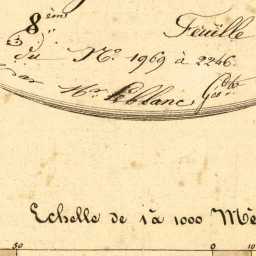 8ème Feuille
du Nº 1969 à 2246
par Mr Leblanc Géo
Echelle de 1 à 1000 Mè
50 0 10